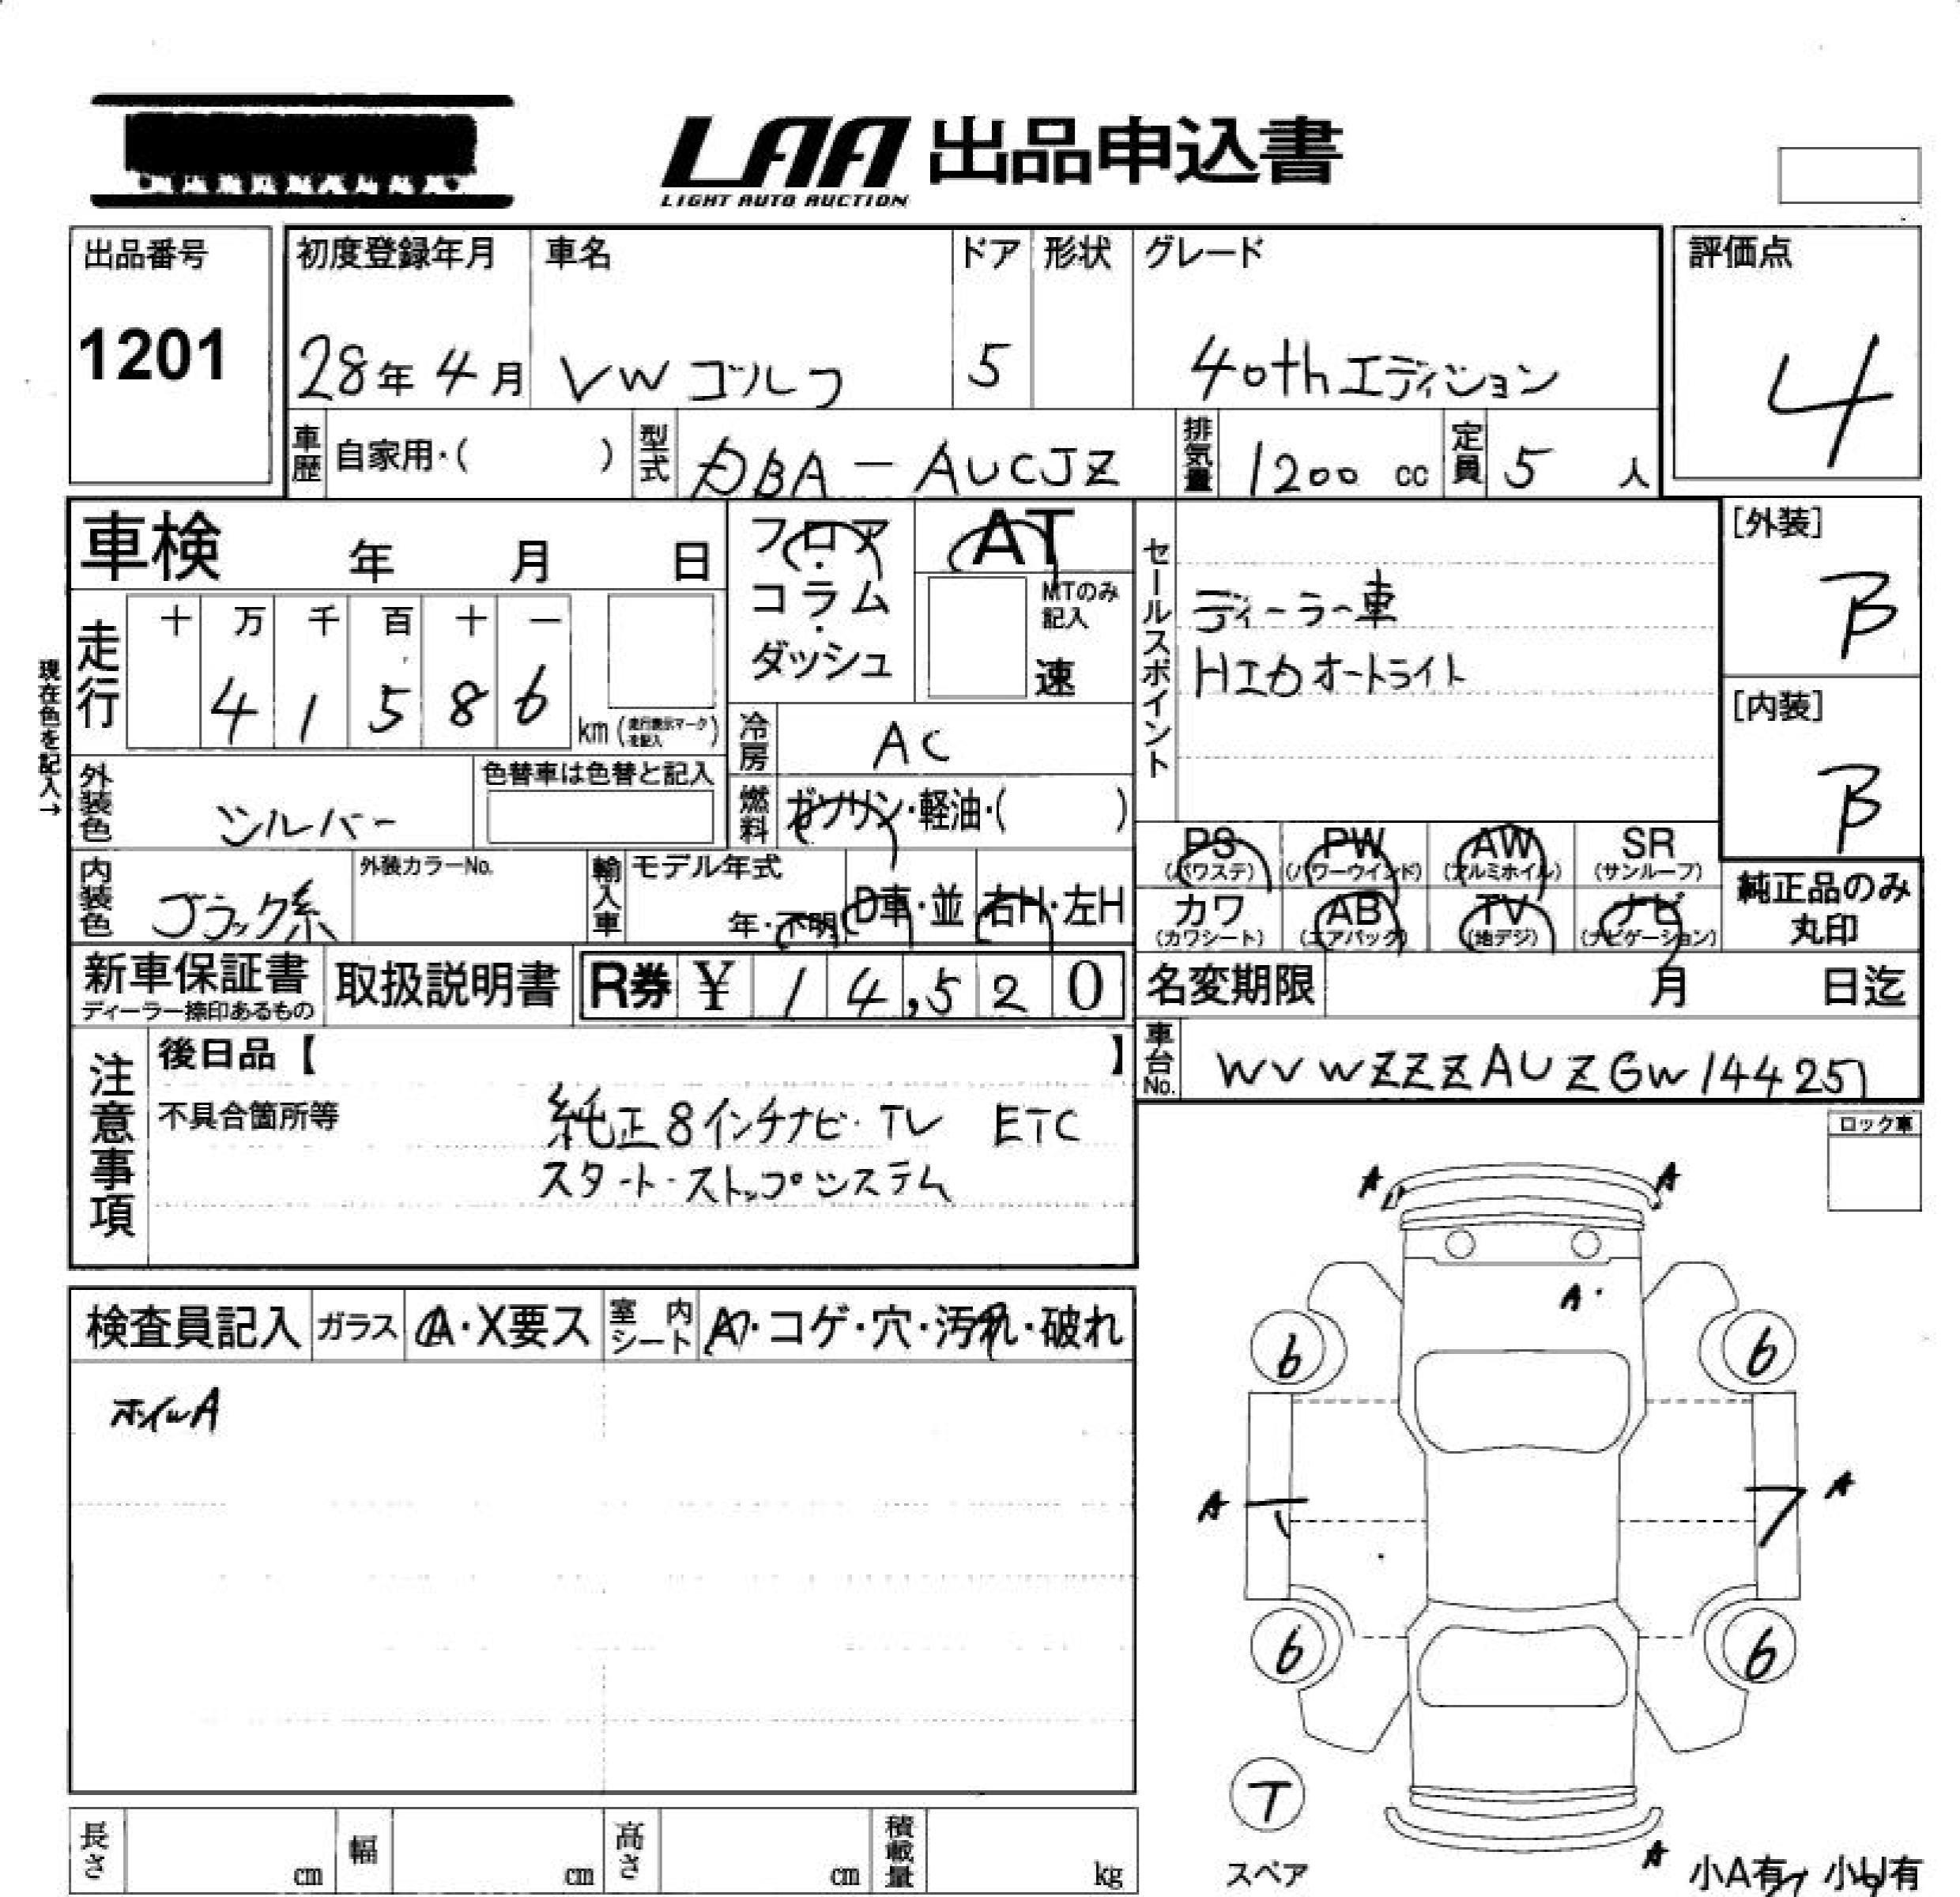 LAA 出品申込書
LIGHT AUTO AUCTION
出品番号 初度登録年月 車名 ドア 形状 グレード 評価点
1201 28年 4月 VW ゴルフ 5 40th エディション 4
車歴 自家用・( ) 型式 DBA - AUCJZ 排気量 1200 cc 定員 5 人
車検 年 月 日 フロア・コラム・ダッシュ AT
MTのみ記入 速
セールスポイント
ディーラー車
HID オートライト
[外装]
B
[内装]
B
現在色を記入→
走行 十 万 千 百 十 一
4 1 5 8 6 km (走行表示マークを記入)
冷房 AC
外装色 シルバー 色替車は色替と記入
燃料 ガソリン・軽油・( )
PS (パワステ) PW (パワーウインド) AW (アルミホイル) SR (サンルーフ)
カワ (カワシート) AB (エアバック) TV (地デジ) ナビ (ナビゲーション)
純正品のみ
丸印
内装色 ブラック系 外装カラーNo. 輸入車 モデル年式 年・不明 D車・並 右H・左H
新車保証書 取扱説明書 R券 ¥ 1 4,5 2 0 名変期限 月 日迄
ディーラー捺印あるもの
車台No. WVWZZZAUZGW144251
注意事項
後日品【 】
不具合箇所等 純正8インチナビ・TV ETC
スタート・ストップシステム
ロック車
A A
A
検査員記入 ガラス A・X要ス 室内シート A・コゲ・穴・汚れ・破れ
6 6
ホイルA
A A
6 6
T
スペア
A 小A有 小U有
長さ cm 幅 cm 高さ cm 積載量 kg